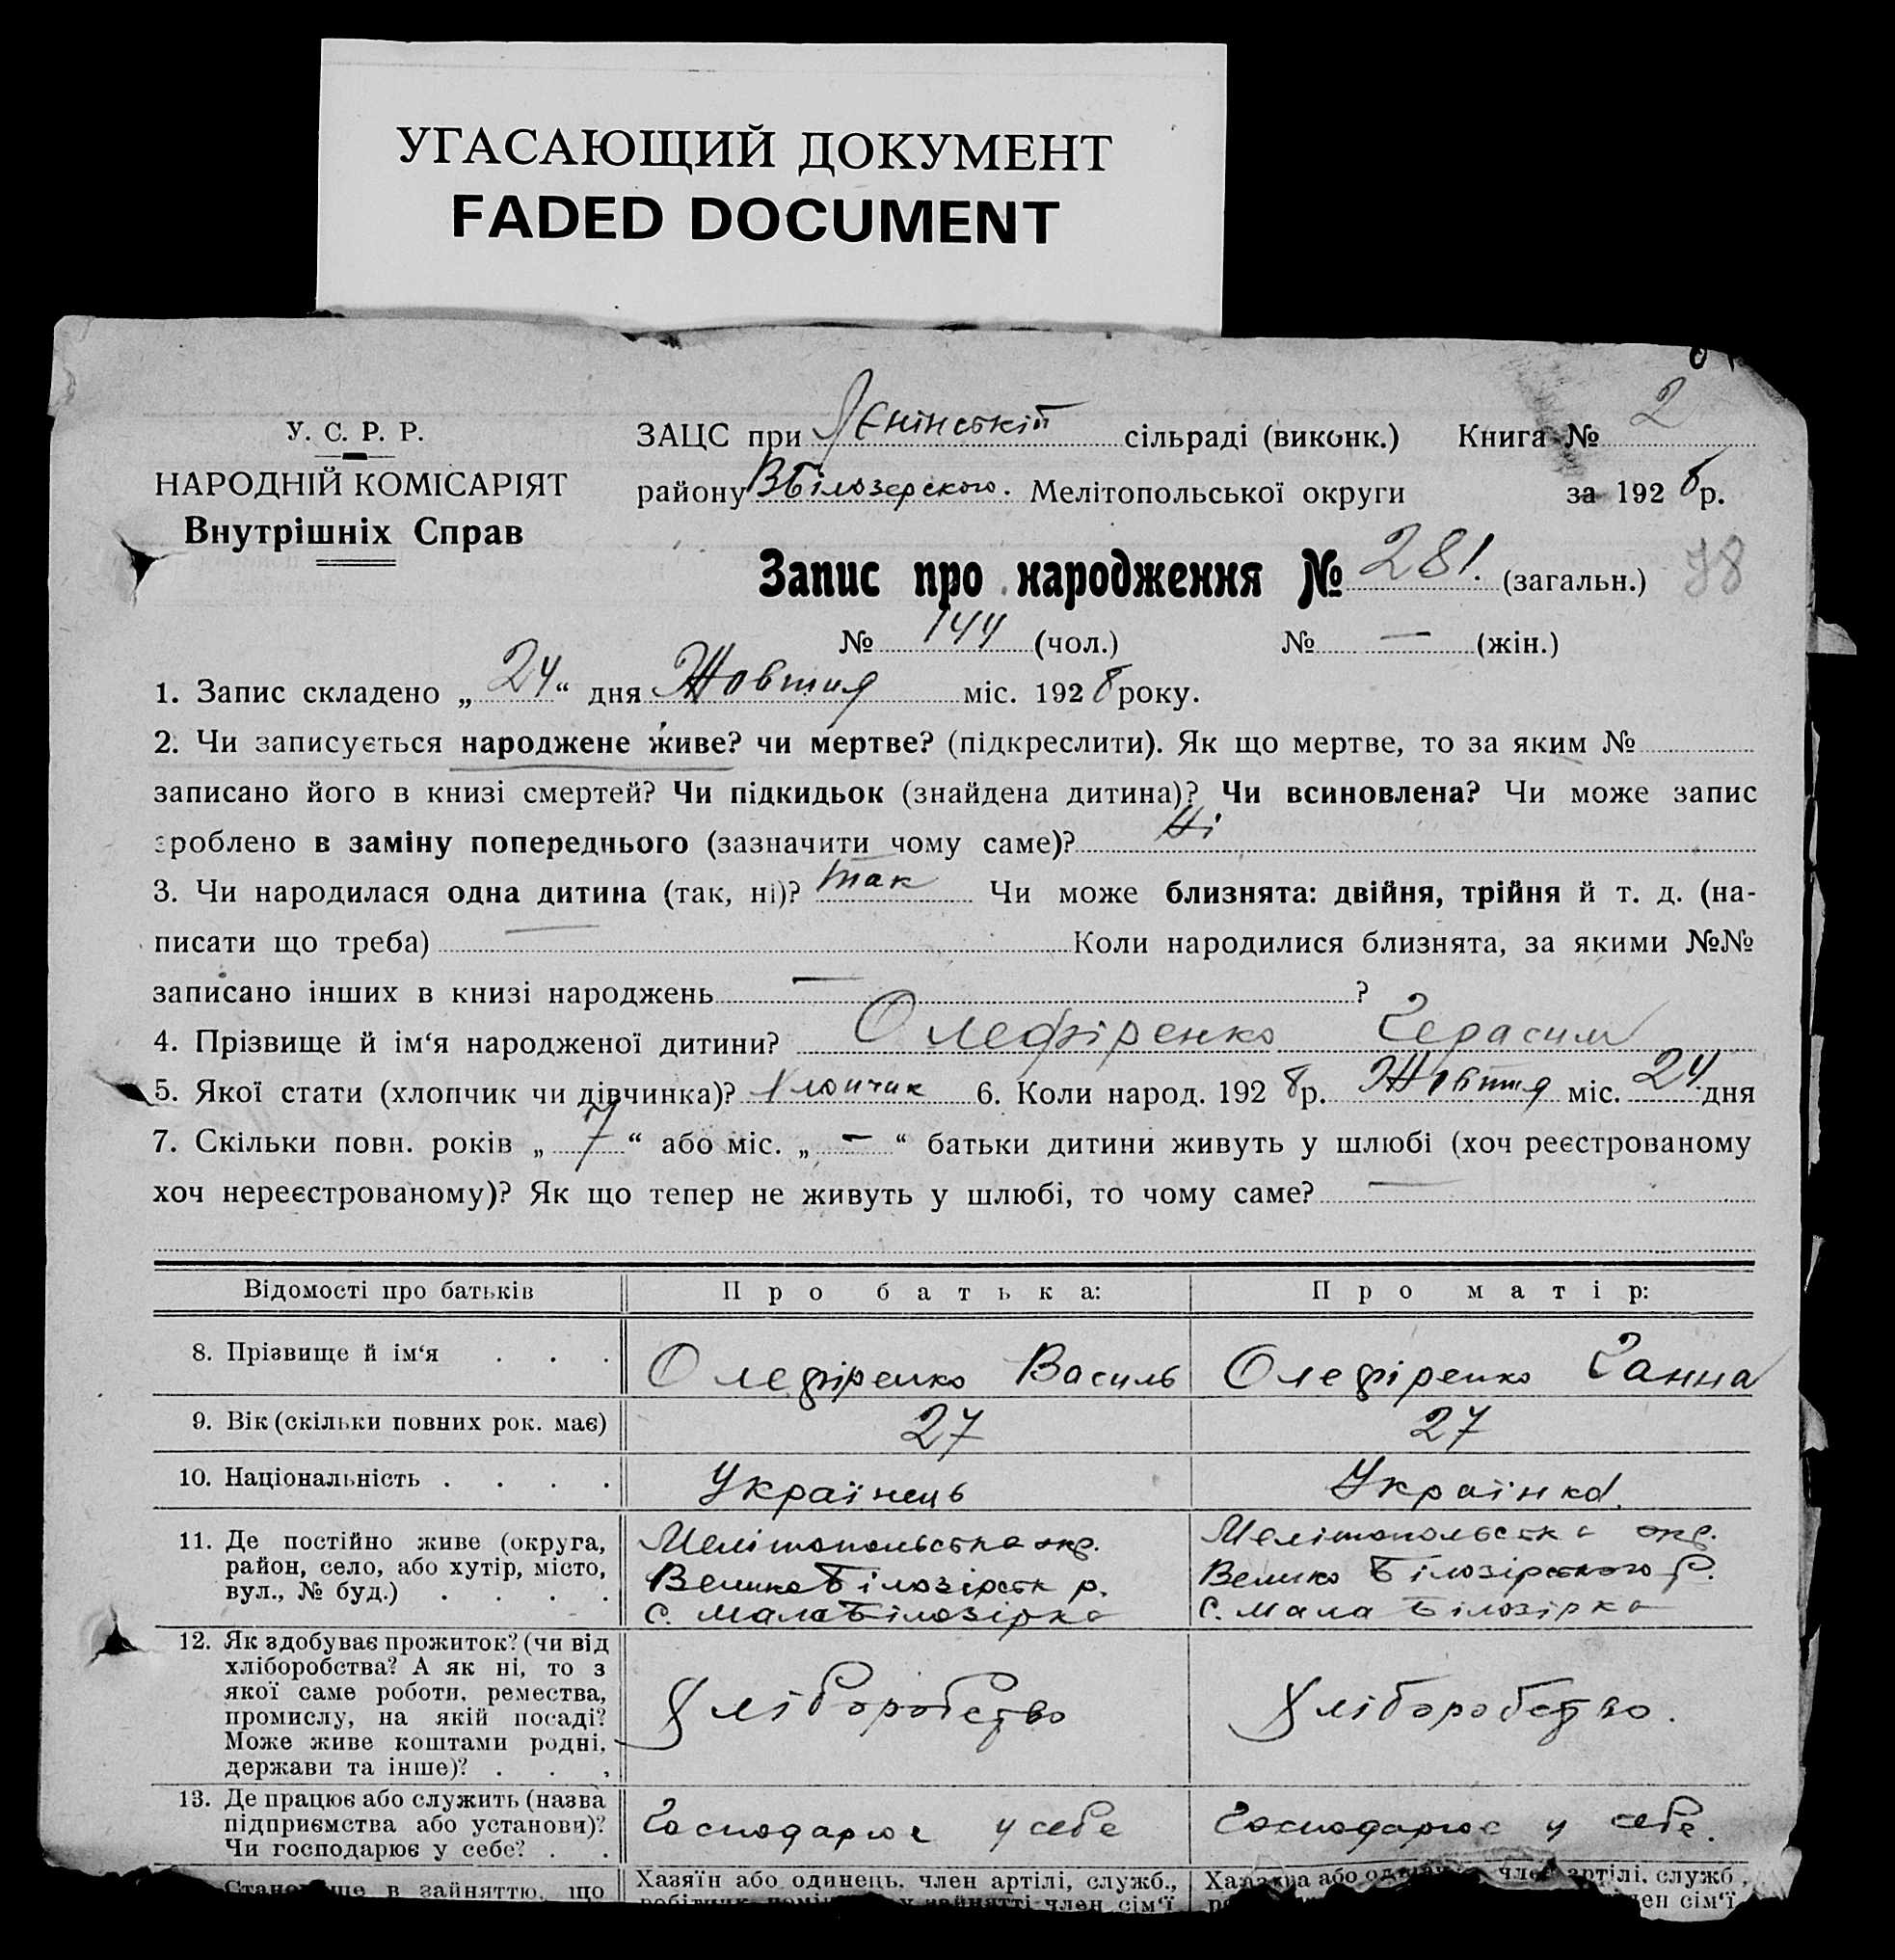 УГАСАЮЩИЙ ДОКУМЕНТ
FADED DOCUMENT
У. С. Р. Р.
НАРОДНІЙ КОМІСАРІЯТ
Внутрішніх Справ
ЗАЦС при Ленінській сільраді (виконк.) Книга № 2
району ВБілозерского. Мелітопольської округи за 1928 р.
Запис про народження № 281. (загальн.) 78
№ 144 (чол.) № — (жін.)
1. Запис складено „ 24 “ дня Жовтня міс. 1928 року.
2. Чи записується народжене живе? чи мертве? (підкреслити). Як що мертве, то за яким №
записано його в книзі смертей? Чи підкидьок (знайдена дитина)? Чи всиновлена? Чи може запис
зроблено в заміну попереднього (зазначити чому саме)? Ні
3. Чи народилася одна дитина (так, ні)? так Чи може близнята: двійня, трійня й т. д. (на-
писати що треба) — Коли народилися близнята, за якими №№
записано інших в книзі народжень — ?
4. Прізвище й ім‘я народженої дитини? Олефіренко Герасим
5. Якої стати (хлопчик чи дівчинка)? Хлопчик 6. Коли народ. 1928 р. Жовтня міс. 24 дня
7. Скільки повн. років „ 7 “ або міс. „ — “ батьки дитини живуть у шлюбі (хоч реєстрованому
хоч нереєстрованому)? Як що тепер не живуть у шлюбі, то чому саме? —
Відомості про батьків Про батька: Про матір:
8. Прізвище й ім‘я . . . Олефіренко Василь Олефіренко Ганна
9. Вік (скільки повних рок. має) 27 27
10. Національність . . . . Українець Українка.
11. Де постійно живе (округа,
район, село, або хутір, місто,
вул., № буд.) . . . .
Мелітопольська окр.
Велико Білозірськ р.
с. Мала Білозірка
Мелітопольська окр.
Велико Білозірського р.
с. Мала Білозірка
12. Як здобуває прожиток? (чи від
хліборобства? А як ні, то з
якої саме роботи, ремества,
промислу, на якій посаді?
Може живе коштами родні,
держави та інше)? . . .
Хліборобство
Хліборобство.
13. Де працює або служить (назва
підприємства або установи)?
Чи господарює у себе? . .
Господарює у себе
Господарює у себе.
в зайняттю, що
Хазяїн або одинець, член артілі, служб.,
член сім‘ї
або член артілі, служб.,
член сім‘ї